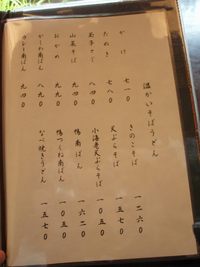 温かいそばうどん
かけ 七一〇
たぬき 七八〇
若芋とじ 八四〇
山菜そば 九四〇
おかめ 九九〇
かしわ南ばん 八九〇
カレー南ばん 九四〇
きのこそば 一二六〇
天ぷらそば 一五七〇
小海老天ぷらそば 一〇五〇
鴨南ばん 一六二〇
鴨つくね南ばん 一〇五〇
なべ焼きうどん 一五七〇